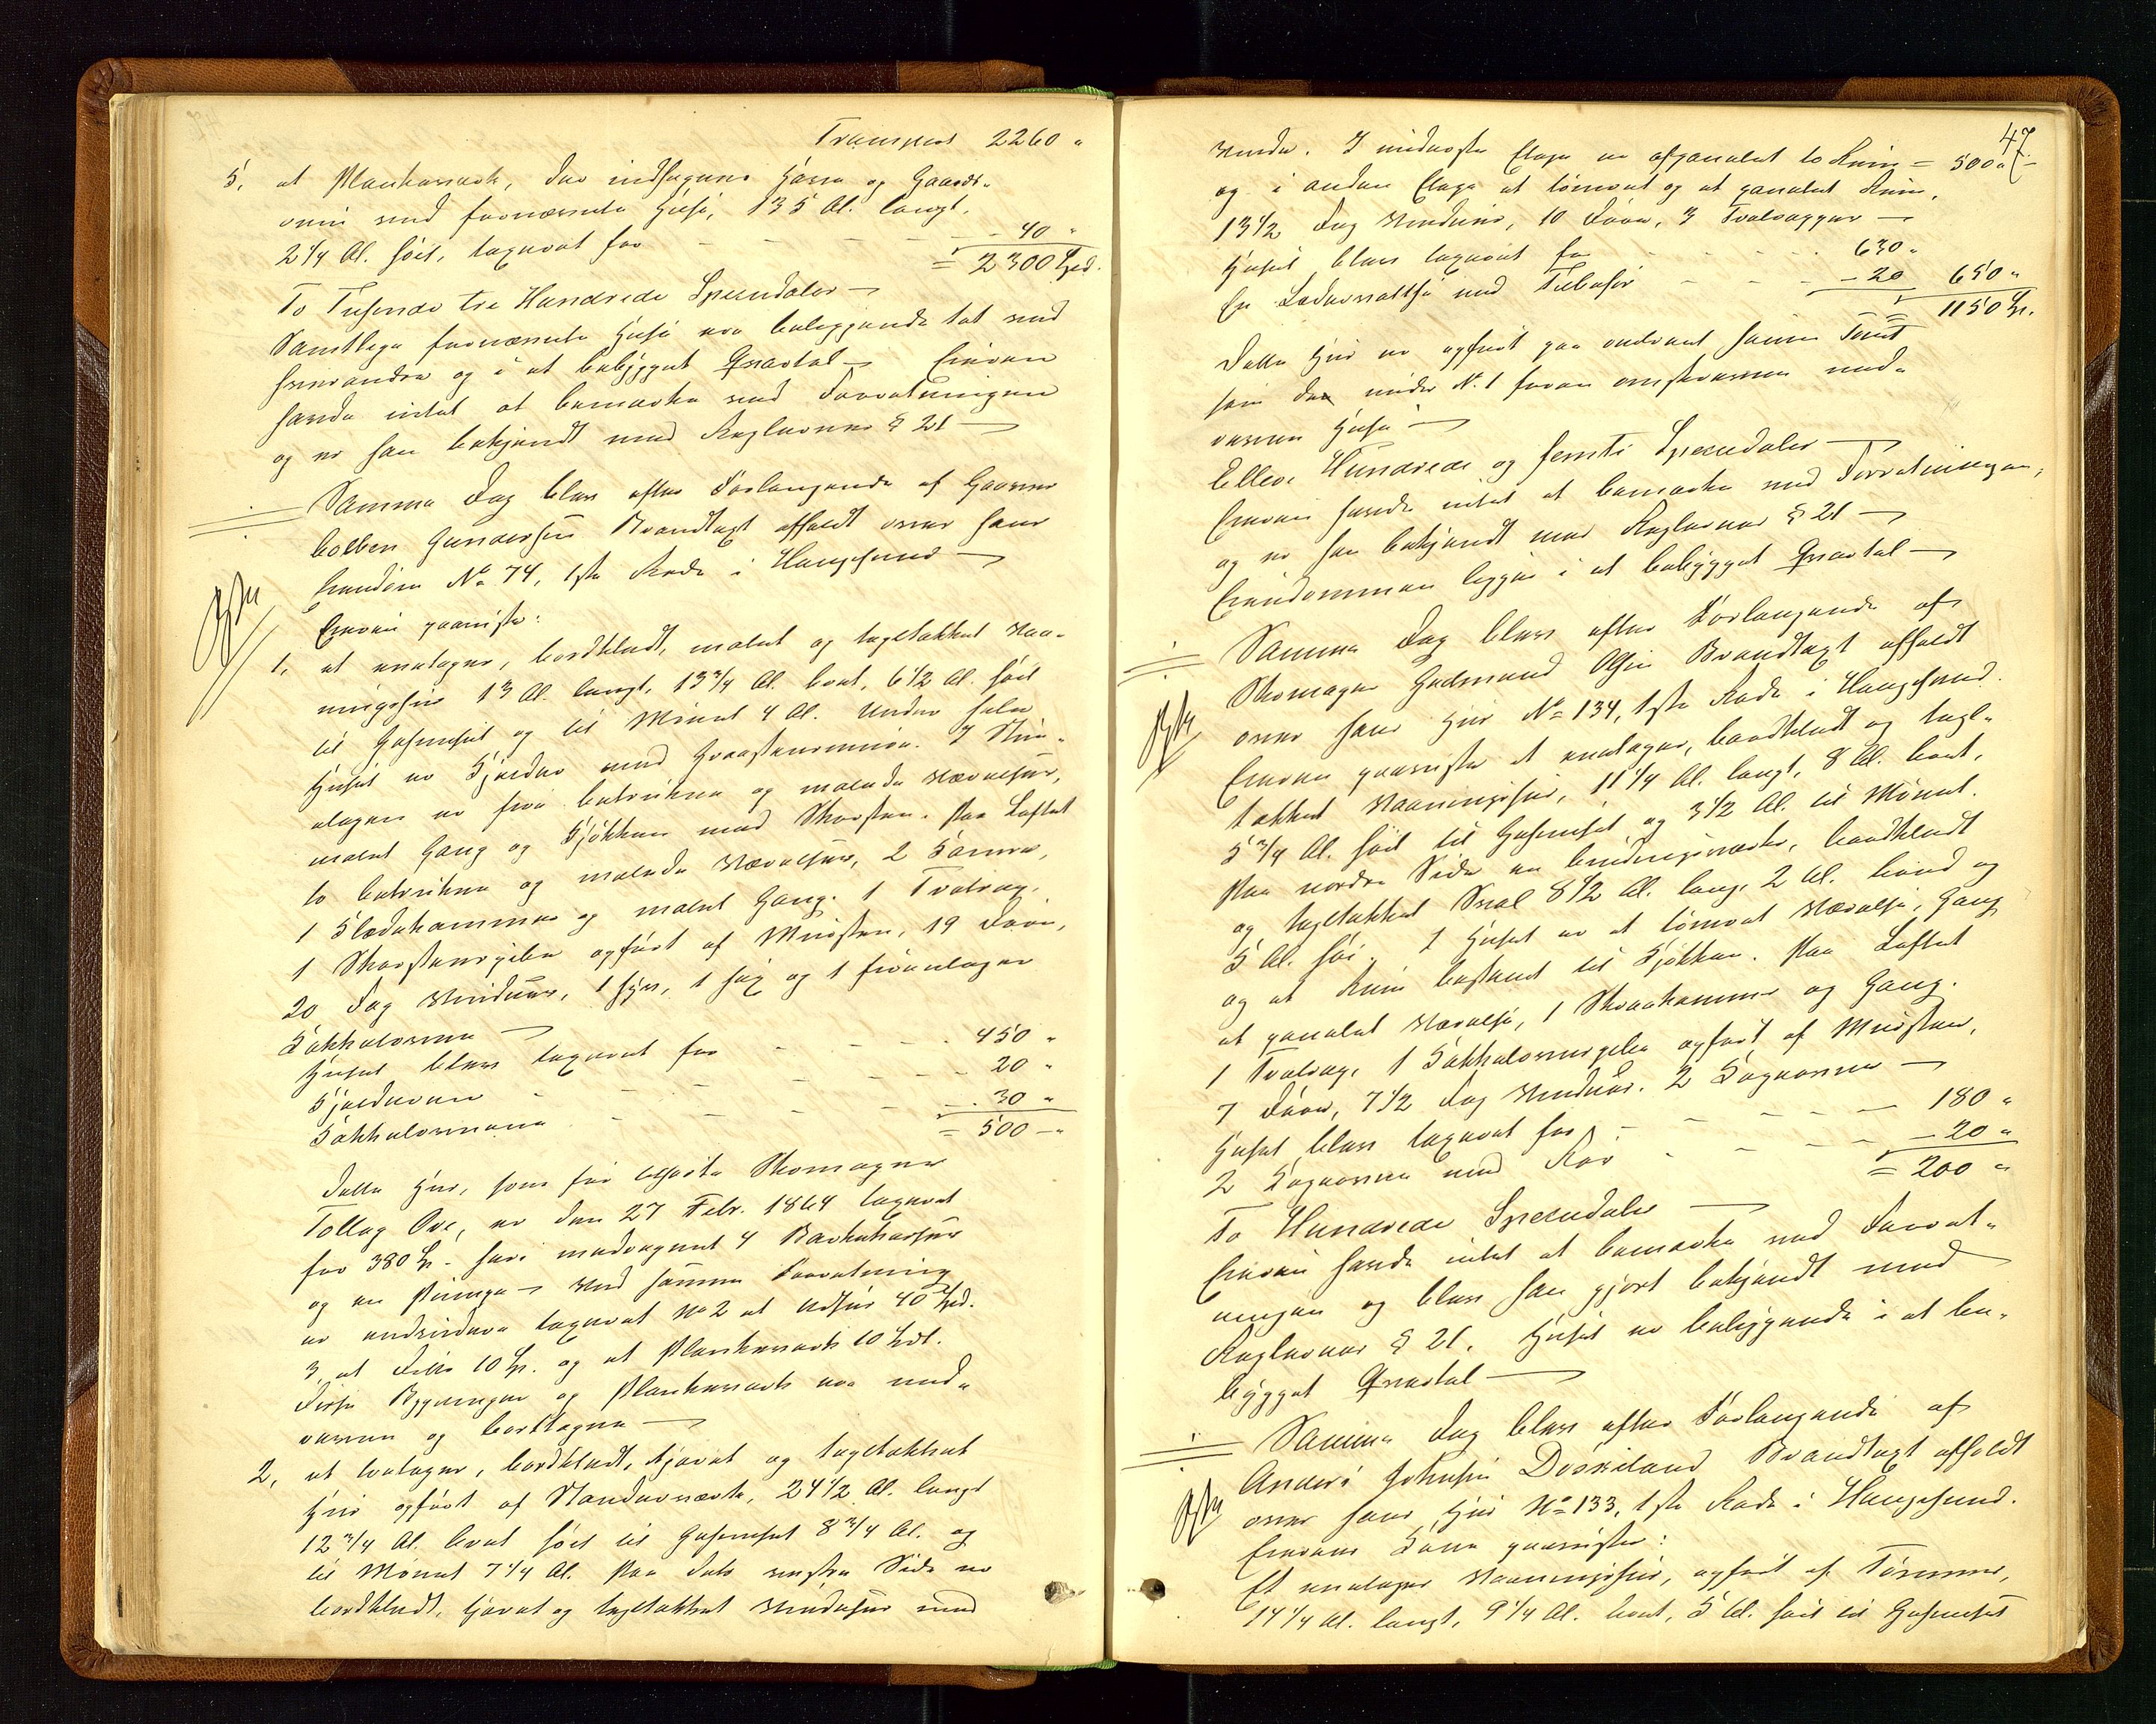 Transport 2260 "
5, et Plankeværk, der indhegner Have og Gaards-
rum ved fornævnte Huse, 135 Al. langt,
2 1/4 Al. høit, taxeret for - - - - 40 "
= 2300 Spd.
To Tusende tre Hundrede Speciedaler —
Samtlige fornævnte Huse ere beliggende tæt ved
hverandre og i et bebygget Qvartal — Eieren
havde intet at bemærke ved Forretningen
og er han bekjendt med Reglernes § 21 —
Samme Dag blev efter Forlangende af Garver
Colben Gundersen Brandtaxt afholdt over hans
Eiendom No 74, 1ste Rode i Haugesund —
Eieren paaviste:
1, et enetages, bordklædt, malet og tagltækket Vaa-
ningshus 13 Al. langt, 13 3/4 Al. bredt, 6 1/2 Al. høit
til Gesimset og til Mønet 4 Al. Under hele
Huset er Kjelder med Graasteensmure. I Stue-
etagen er fire betrukne og malede Værelser,
malet Gang og Kjøkken med Skorsten. Paa Loftet
to betrukne og malede Værelser, 2 Kamre,
1 Klædekammer og malet Gang. 1 Trætrap,
1 Skorstenspibe opført af Mursten, 19 Døre,
20 Fag Vinduer, 1 fyr, 1 sex og 1 fireetages
Kakkelovne —
Huset blev taxeret for - - - 450 "
Kjelderen - - - 20 "
Kakkelovnene - - - 30 "
= 500 — "
Dette Huus, som før tilhørte Skomager
Tollag Ove, er den 27 Febr. 1864 taxeret
for 380 Sp. heri medregnet 4 Bankekarsker
og en Pumpe — Ved samme Forretning
er endvidere taxeret No 2 et Udhus 40 Spd.
3, et Ditto 10 Sp. og et Plankeværk 10 Spdl.
Disse Bygninger og Plankeværk ere ned-
revne og borttagne —
2, et toetages, bordklædt, tjæret og tagltækket
Huus opført af Standerværk, 24 1/2 Al. langt
12 3/4 Al. bredt høit til Gesimset 8 3/4 Al. og
til Mønet 7 1/4 Al. Paa dets vestre Side er
bordklædt, tjæret og tagltækket Vindehus med
47
Vinde. I nederste Etage er afpanelet to Rum = 500 "
og i anden Etage et tømret og et panelet Rum,
13 1/2 Fag Vinduer, 10 Døre, 3 Trætrapper —
Huset blev taxeret for - - - 630 "
En Lædervaltse med Tilbehør - - - 20 650 "
= 1150 Sp.
Dette Huus er opført paa endeel samme Tomt
som de under No 1 foran omskrevne ned-
revne Huse —
Elleve Hundrede og femti Speciedaler —
Eieren havde intet at bemærke ved Forretningen,
og er han bekjendt med Reglernes § 21 —
Eiendommen ligger i et bebygget Qvartal —
Samme Dag blev efter Forlangende af
Skomager Gudmund Olsen Brandtaxt afholdt
over hans Huus No 134, 1ste Rode i Haugesund.
Eieren paaviste et enetages, bordklædt og tagl-
tækket Vaaningshus, 11 1/4 Al. langt, 8 Al. bredt,
5 3/4 Al. høit til Gesimset og 3 1/2 Al. til Mønet.
Paa nordre Side en bindingsværks, bordklædt
og tagltækket Sval 8 1/2 Al. lang, 2 Al. bred og
5 Al. høi. I Huset er et tømret Værelse, Gang
og et Rum bestemt til Kjøkken. Paa Loftet
et panelet Værelse, 1 Skraakammer og Gang.
1 Trætrap, 1 Kakkelovnspibe opført af Mursten,
7 Døre, 7 1/2 Fag Vinduer. 2 Kogeovne —
Huset blev taxeret for - - - 180 "
2 Kogeovne med Rør - - - 20 "
= 200 "
To Hundrede Speciedaler —
Eieren havde intet at bemærke ved Forret-
ningen og blev han gjort bekjendt med
Reglernes § 21. Huset er beliggende i et be-
bygget Qvartal —
Samme Dag blev efter Forlangende af
Anders Johnsen Døskeland Brandtaxt afholdt
over hans Huus No 133, 1ste Rode i Haugesund.
Eierens Kone paaviste:
Et enetages Vaaningshus, opført af Tømmer,
14 1/4 Al. langt, 9 1/4 Al. bredt, 5 Al. høit til Gesimset